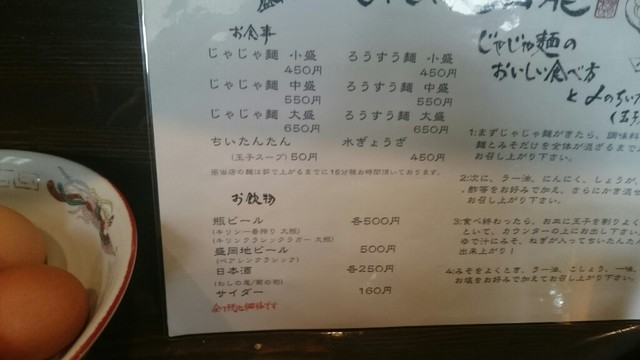 お食事
じゃじゃ麺 小盛 450円
じゃじゃ麺 中盛 550円
じゃじゃ麺 大盛 650円
ちいたんたん (玉子スープ) 50円
ろうすう麺 小盛 450円
ろうすう麺 中盛 550円
ろうすう麺 大盛 650円
水ぎょうざ 450円
※当店の麺は茹で上がるまでに15分程お時間頂いております。
お飲物
瓶ビール 各500円
(キリン一番搾り 大瓶)
(キリンクラシックラガー 大瓶)
盛岡地ビール 500円
(ベアレンクラシック)
日本酒 各250円
(わしの尾/菊の司)
サイダー 160円
全て税込価格です
じゃじゃ麺の
おいしい食べ方
と〆のちいた
(玉子
1:まずじゃじゃ麺がきたら、調味料
麺とみそだけを全体が混ざるまで
お召し上がり下さい。
2:次に、ラー油、にんにく、しょうが、
、酢等をお好みで加え、さらにかき混ぜ
お召し上がり下さい。
3:食べ終わったら、お皿に玉子を割りよく
といて、カウンターの上にお出し下さい。
ゆで汁にみそ、ねぎが入ってちいたんたん
出来上がり!
4:みそをよくとき、ラー油、こしょう、一味、
お塩をお好みで加えてお召し上がり下さい。